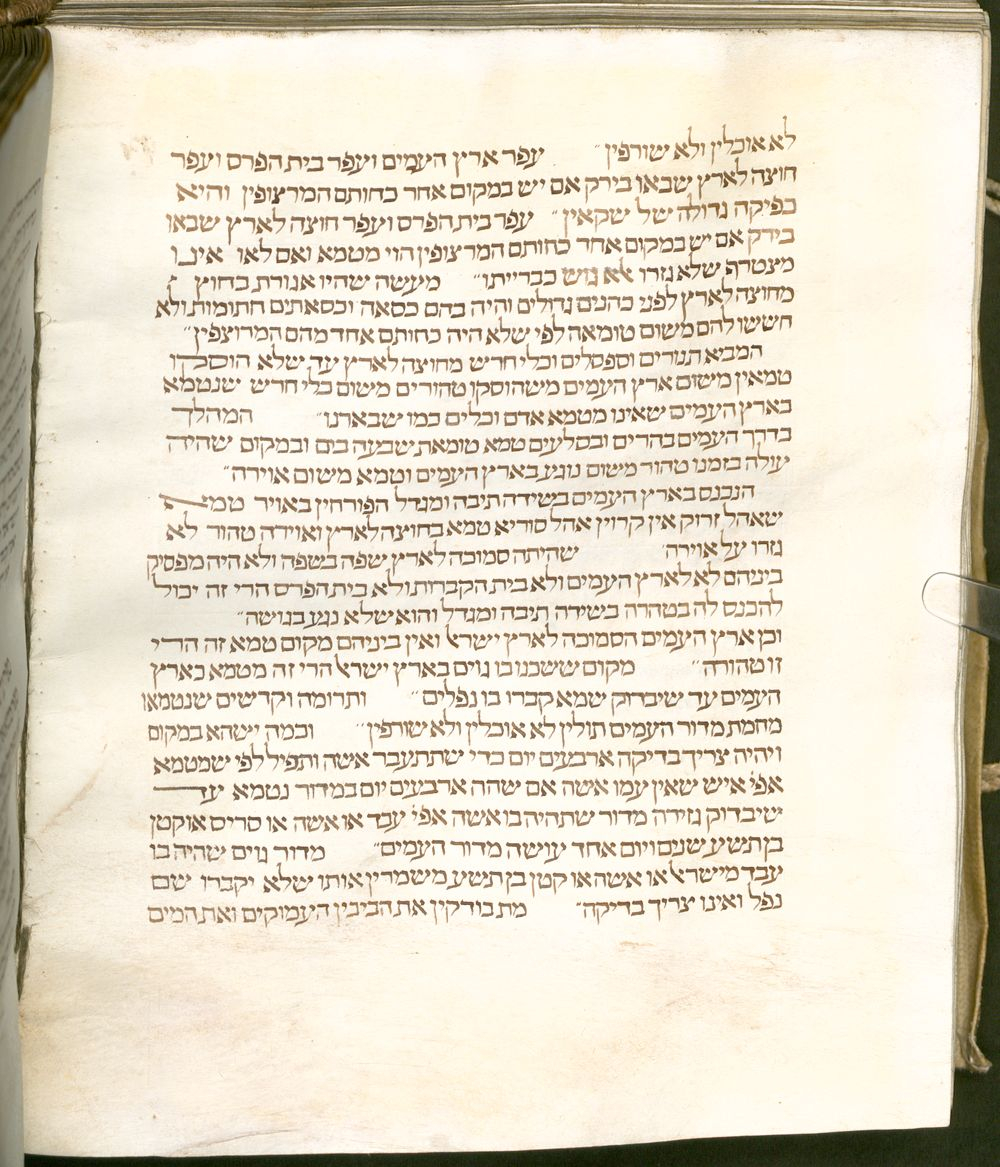 לא אוכלין ולא שורפין״ עפר ארץ העמים ועפר בית הפרס ועפר
חוצה לארץ שבאו בירק אם יש במקום אחר כחותם המרצופין והיא
כפיקה גדולה של שקאין״ עפר בית הפרס ועפר חוצה לארץ שבאו
בירק אם יש במקום אחד כחותם המרצופין הוי מטמא ואם לאו אינו
מצטרף שלא גזרו לא גוש כברייתו״ מעשה שהיו אגורת בחוץ
מחוצה לארץ לפני כהנים גדולים והיה בהם כסאה וכסאתים חתומות ולא
חששו להם משום טומאה לפי שלא היה כחותם אחד מהם המרוצפין״
המביא תנורים וספסלים וכלי חרש מחוצה לארץ עד שלא הוסקו
טמאין משום ארץ העמים משהוסקו טהורים משום כלי חרש שנטמא
בארץ העמים שאינו מטמא אדם וכלים כמו שבארנו״ המהלך
בדרך העמים בהרים ובסלעים טמא טומאת שבעה בים ובמקום שהיה
עולה בזמנו טהור משום נוגע בארץ העמים וטמא משום אוירה״
הנכנס בארץ העמים בשידה תיבה ומגדל הפורחין באויר טמא
שאהל זרוק אין קרוין אהל סוריא טמא בחוצה לארץ ואוירה טהור לא
גזרו על אוירה״ שהיתה סמוכה לארץ שפה בשפה ולא היה מפסיק
ביניהם לא לארץ העמים ולא בית הקברות ולא בית הפרס הרי זה יכול
להכנס לה בטהרה בשידה תיבה ומגדל והוא שלא נגע בגושה״
וכן ארץ העמים הסמוכה לארץ ישראל ואין ביניהם מקום טמא זה הרי
זו טהורה״ מקום ששכנו בו גוים בארץ ישראל הרי זה מטמא כארץ
העמים עד שיבדוק שמא קברו בו נפלים״ ותרומה וקדשים שנטמאו
מחמת מדור העמים תולין לא אוכלין ולא שורפין״ ובמה יישהא במקום
ויהיה צריך בדיקה ארבעים יום כדי שתתעבר אשה ותפיל לפי שמטמא
אפי׳ איש שאין עמו אשה אם שהה ארבעים יום במדור נטמא עד
שיבדוק גזירה מדור שתהיה בו אשה אפי׳ עבד או אשה או סריס או קטן
בן תשע שנים ויום אחד עושה מדור העמים״ מדור גוים שהיה בו
עבד מישראל או אשה או קטן בן תשע משמרין אותו שלא יקברו שם
נפל ואינו צריך בדיקה״ מת בודקין את הביבין העמוקים ואת המים